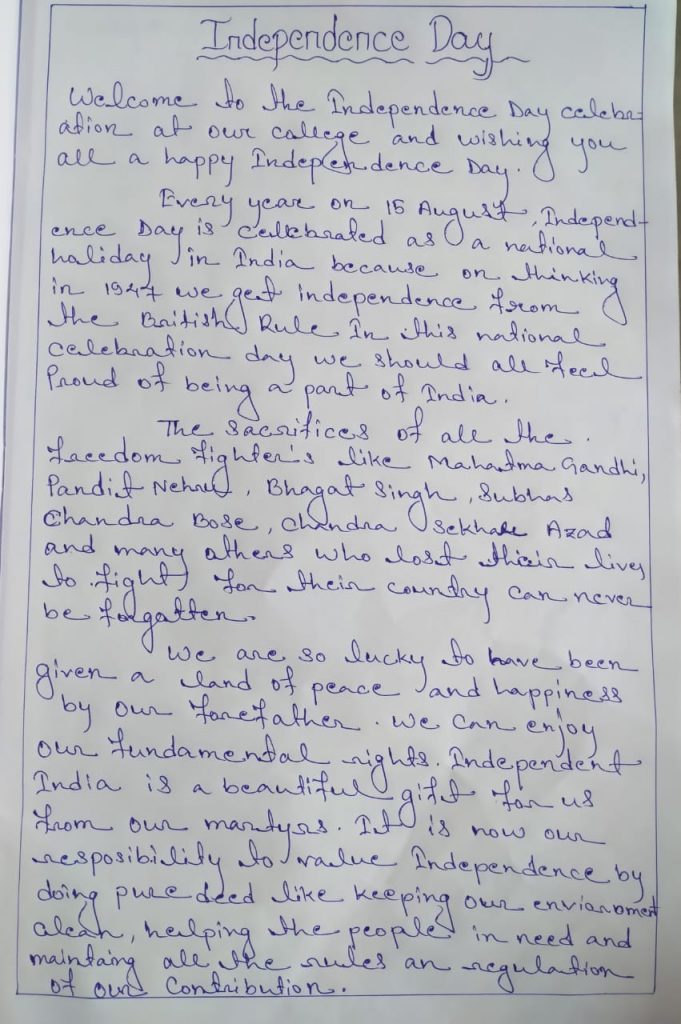 Independence Day
Welcome to the Independence Day celebr-
ation at our college and wishing you
all a happy Independence Day.
Every year on 15 August, Independ-
ence Day is cellebrated as a national
haliday in India because on thinking
in 1947 we get independence from
the British Rule In this national
celebration day we should all feel
Proud of being a part of India.
The sacrifices of all the
freedom fighter's like Mahatma Gandhi,
Pandit Nehru, Bhagat Singh, Subhas
Chandra Bose, Chandra Sekhar Azad
and many others who lost their lives
to fight for their country can never
be forgatten.
We are so lucky to have been
given a land of peace and happiness
by our forefather. We can enjoy
our fundamental rights. Independent
India is a beautiful gift for us
from our martyrs. It is now our
resposibility to value Independence by
doing pure deed like keeping our envioroment
clean, helping the people in need and
maintaing all the rules an regulation
of our Contribution.